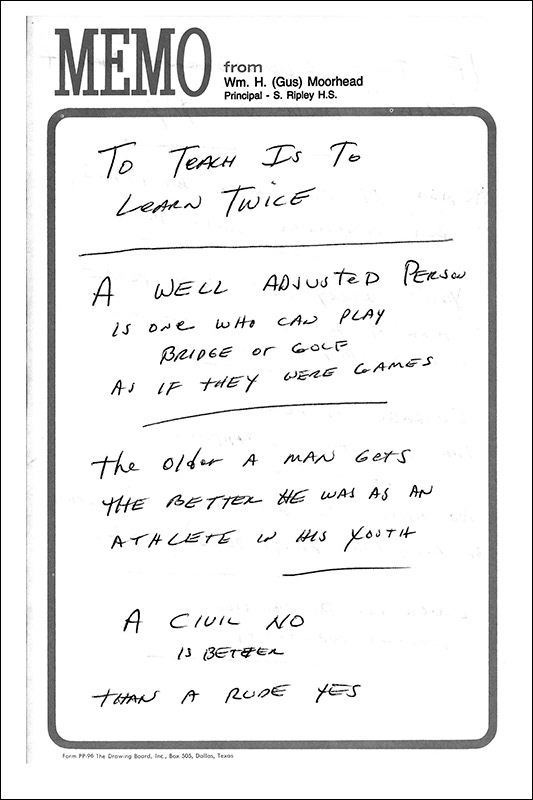 MEMO
from
Wm. H. (Gus) Moorhead
Principal - S. Ripley H.S.
To Teach Is To
Learn Twice
A WELL ADJUSTED PERSON
IS ONE WHO CAN PLAY
BRIDGE or GOLF
AS IF THEY WERE GAMES
the Older A MAN Gets
THE BETTER HE WAS AS AN
ATHLETE IN HIS YOUTH
A CIVIL NO
IS BETTER
THAN A RUDE YES
Form PP-96 The Drawing Board, Inc., Box 505, Dallas, Texas